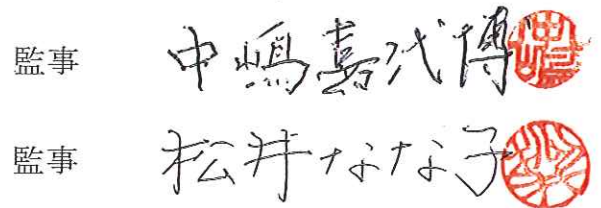 監事 中嶋喜代博
監事 松井なな子